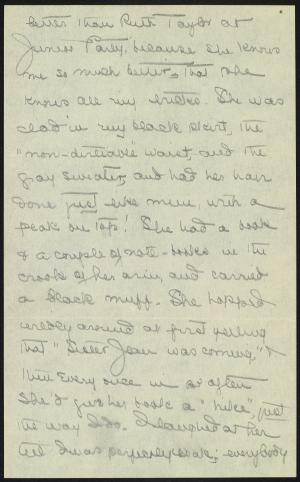 better than Ruth Taylor at
Junior Party, because she knows
me so much better, that she
knows all my tricks. She was
clad in my black skirt, the
"non-dirtiable" waist, and the
gray sweater, and had her hair
done just like mine, with a
peak on top! She had a book
& a couple of note-books in the
crook of her arm, and carried
a black muff. She hopped
around at first yelling
that "Sister Jean was coming,"
then every once in so often
she'd give her book a "hike", just
the way I do. I laughed at her
till I was perfectly weak; everybody